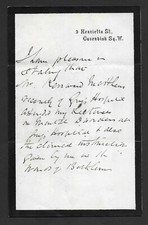 8 Henrietta St.
Cavendish Sq. W.
I have pleasure in
stating that
Mr. Bernard Matthews
recently of Guy's Hospital
attended my lectures
on Mental Diseases at
Guy's Hospital & also
the clinical instruction
given by me in the
wards of Bethlem